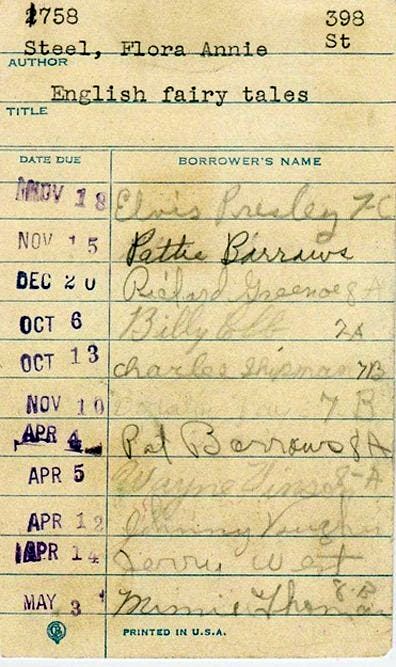 2758 398
Steel, Flora Annie St
AUTHOR
English fairy tales
TITLE
DATE DUE BORROWER'S NAME
NOV 18 Elvis Presley 7-C
NOV 15 Pattie Barrows
DEC 20 Richard 8 A
OCT 6 Billy 7A
OCT 13 Charles Shipman 7B
NOV 10 7 B
APR 4 Pat Barrows 8A
APR 5 Wayne 8-A
APR 12 Johnny Vaughn
APR 14 Jerry West
8-B
MAY 3 Minnie Thomas
PRINTED IN U.S.A.